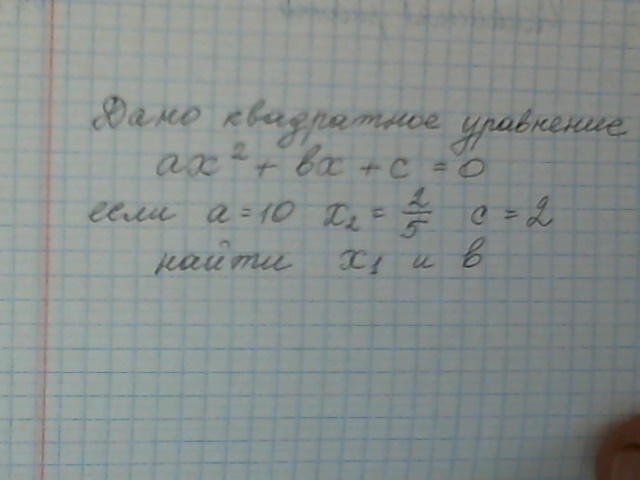 Дано квадратное уравнение
ax² + bx + c = 0
если a = 10 x₂ = 2/5 c = 2
найти x₁ и b